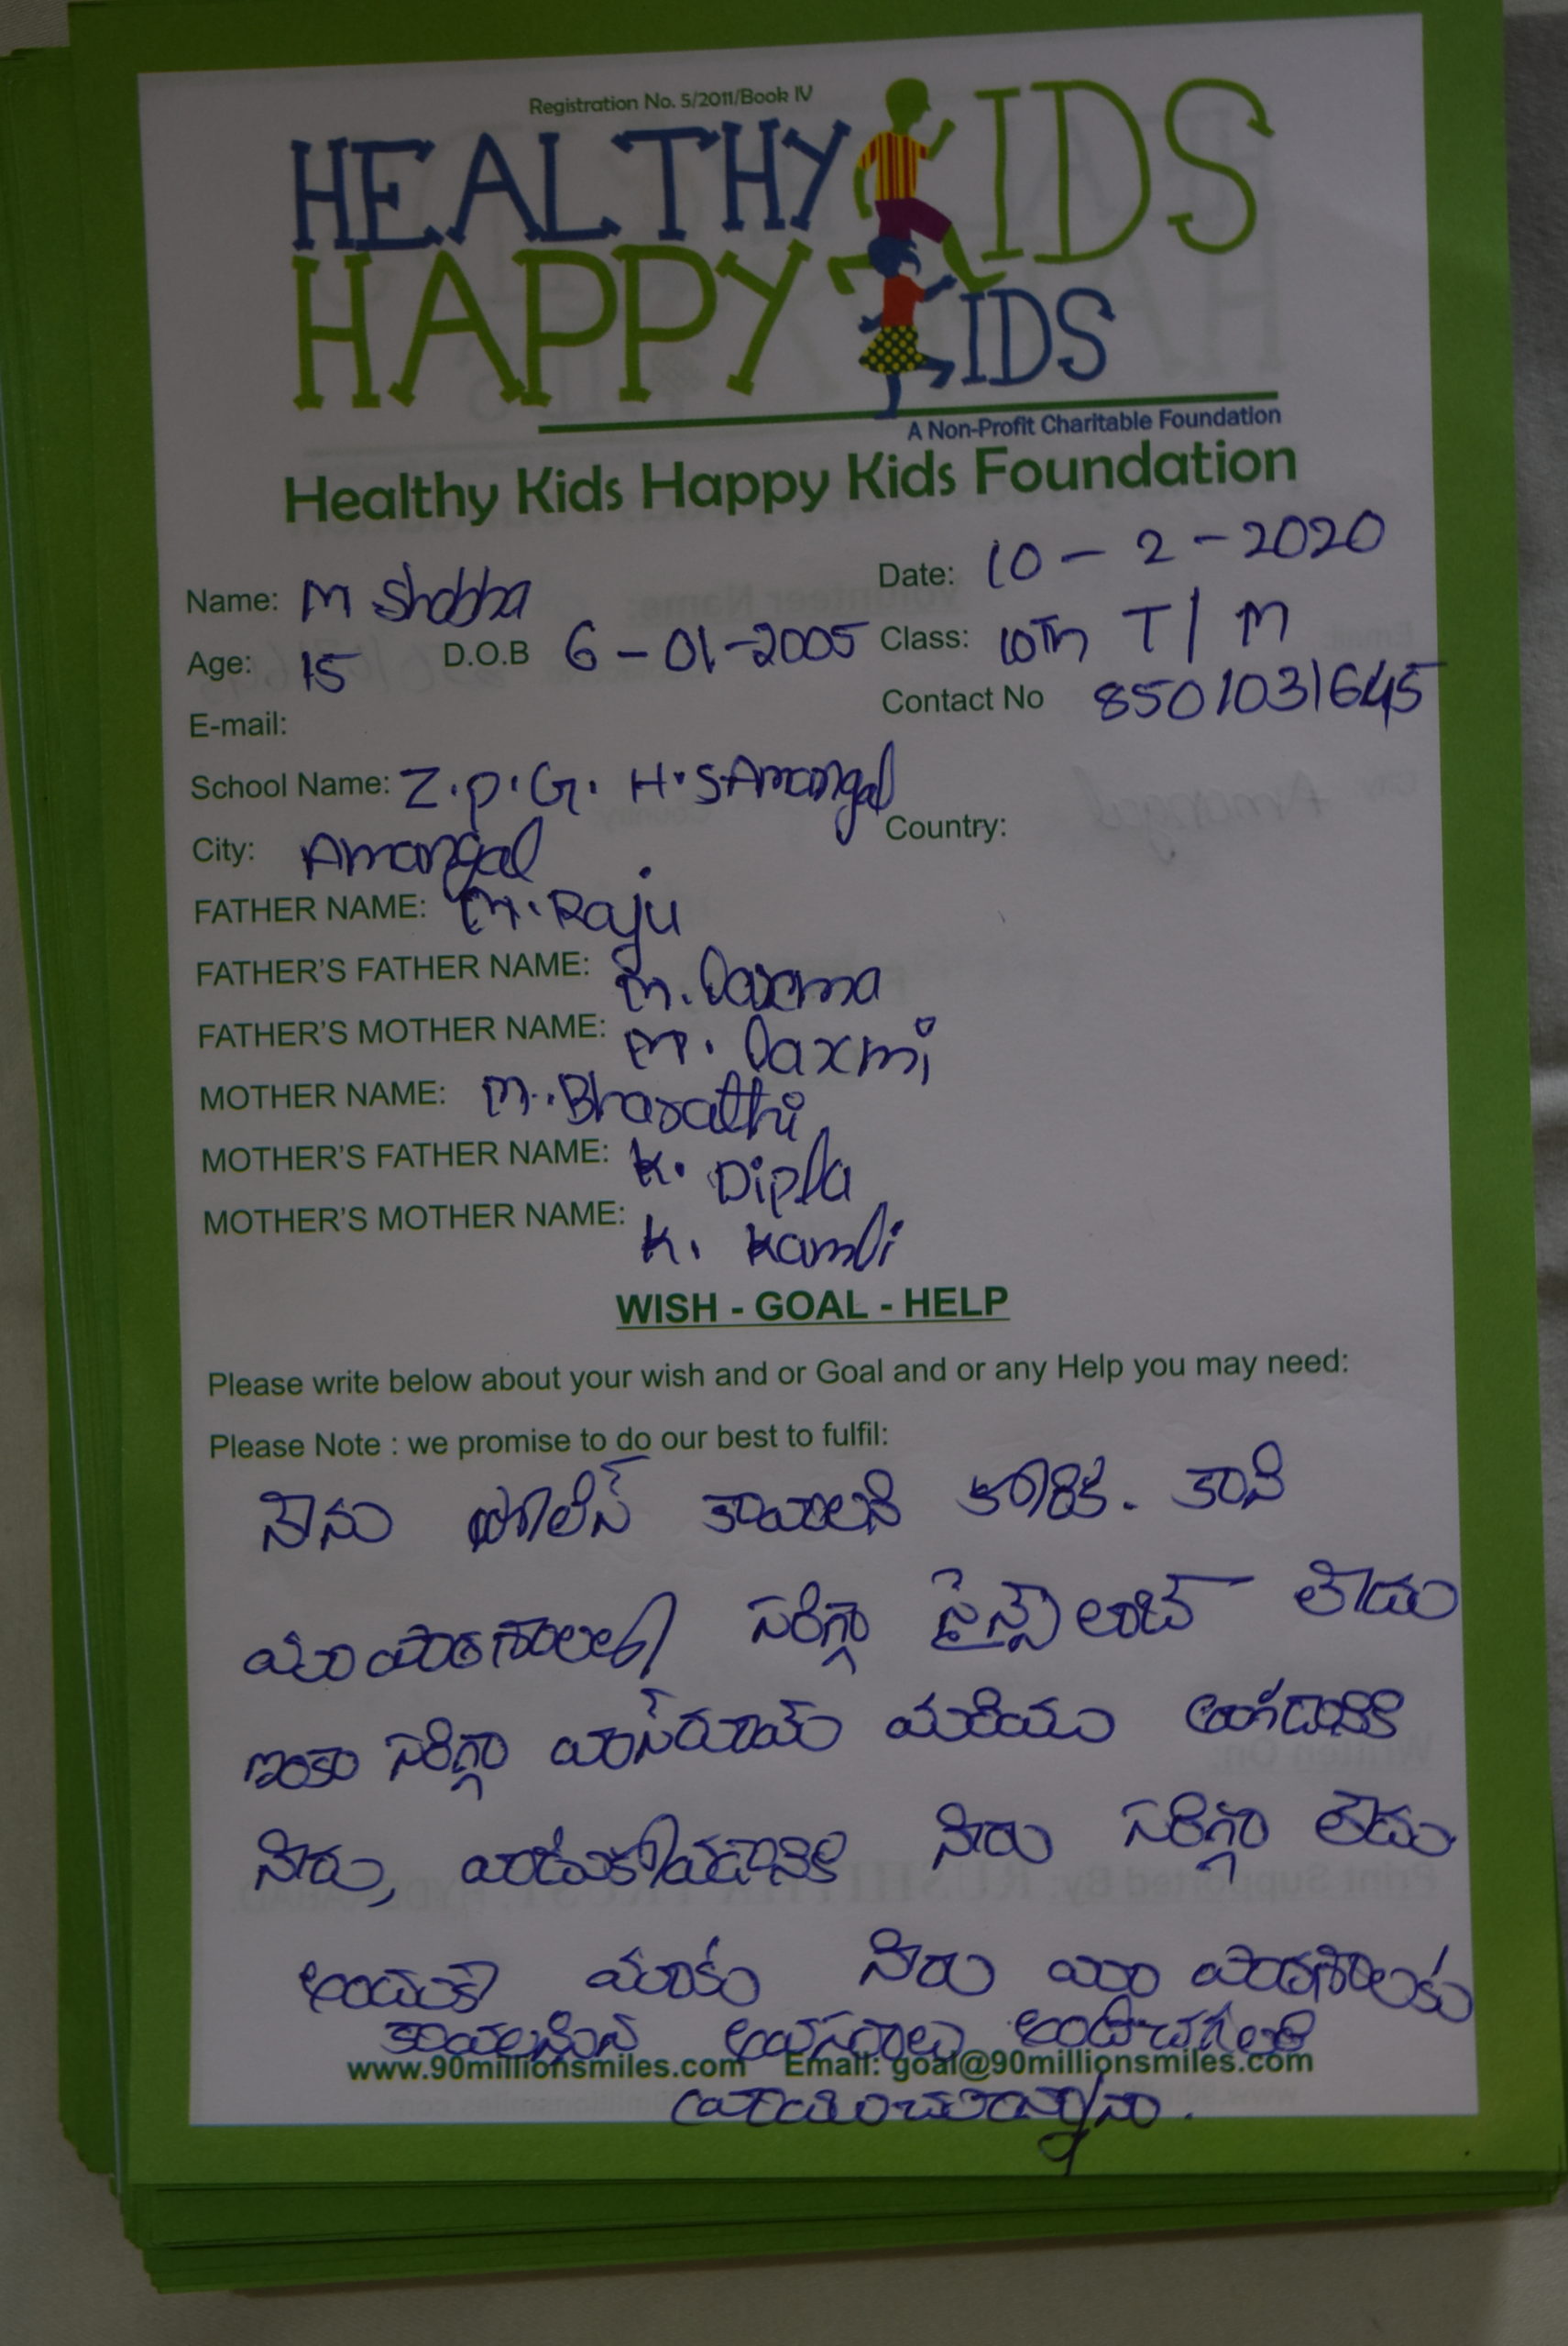 Registration No. 5/2011/Book IV
HEALTHY KIDS
HAPPY KIDS
A Non-Profit Charitable Foundation
Healthy Kids Happy Kids Foundation
Name: M Shobha Date: 10 - 2 - 2020
Age: 15 D.O.B 6 - 01 - 2005 Class: 10Th T/M
E-mail: Contact No 8501031645
School Name: Z.P.G. H.S Amangal
City: Amangal Country:
FATHER NAME: M. Raju
FATHER'S FATHER NAME: M. laxma
FATHER'S MOTHER NAME: M. laxmi
MOTHER NAME: M. Bharathi
MOTHER'S FATHER NAME: K. Dipla
MOTHER'S MOTHER NAME: K. Kamli
WISH - GOAL - HELP
Please write below about your wish and or Goal and or any Help you may need:
Please Note : we promise to do our best to fulfil:
నేను పోలిస్ కావాలని కోరిక. కాని
మా పాఠశాలలో సరిగ్గా సైన్స్ ల్యాబ్ లేదు
ఇంకా సరిగ్గా వాస్‌రూమ్ మరియు త్రాగడానికి
నీరు, వాడుకోవడానికి నీరు సరిగ్గా లేదు
అందుకే మాకు నీరు మా పాఠశాలకు
కావలసిన అవసరాలు అందించగలరని
www.90millionsmiles.com Email: goal@90millionsmiles.com